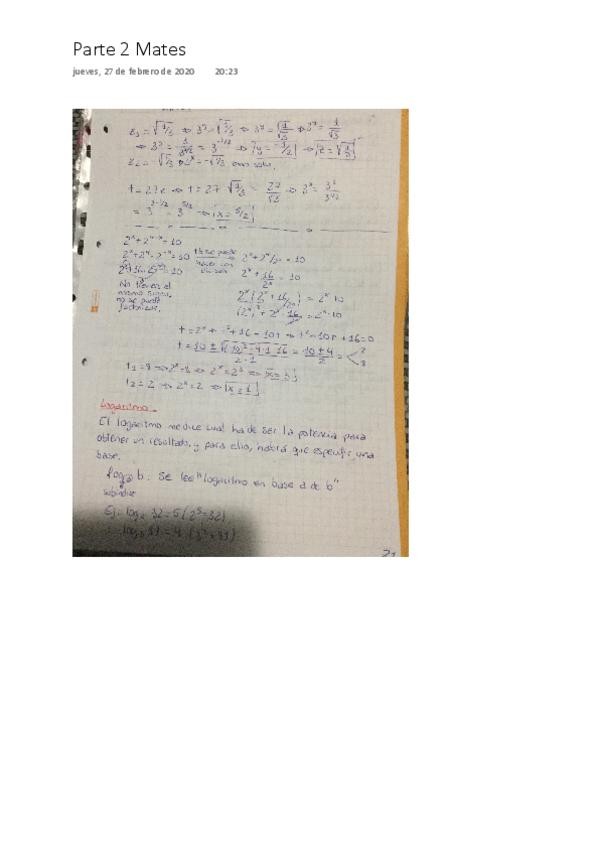 Parte 2 Mates
jueves, 27 de febrero de 2020 20:23
z₁ = √1/3 ⇒ 3^y = √1/3 ⇒ 3^y = √1/√3 ⇒ 3^y = 1/√3
⇒ 3^y = 1/3^1/2 = 3^-1/2 ⇒ y = -1/2 ⇒ z = √1/3
t = 27z ⇒ t = 27 √1/3 = 27/√3 ⇒ 3^x = 3^3/3^1/2
= 3^3-1/2 = 3^5/2 ⇒ x = 5/2
2^x + 2^4-x = 10
2^x + 2^4 · 2^-x = 10 2^x + 2^4/2^x = 10
2^x + 16/2^x = 10
No tienen el
mismo signo,
no se puede
factorizar.
2^x (2^x + 16/2^x) = 2^x · 10
(2^x)^2 + 2^x · 16/2^x = 2^x · 10
t = 2^x ⇒ t^2 + 16 = 10t ⇒ t^2 - 10t + 16 = 0
t = 10 ± √(-10)^2 - 4 · 1 · 16 / 2 · 1 = 10 ± 4 / 2 = < 2 8
t₁ = 8 ⇒ 2^x = 8 ⇒ 2^x = 2^3 ⇒ x = 3
t₂ = 2 ⇒ 2^x = 2 ⇒ x = 1
Logaritmo.-
El logaritmo me dice cual ha de ser la potencia para
obtener un resultado, y para ello, habrá que especificar una
base.
log a b: Se lee "logaritmo en base a de b"
subíndice
Ej:- log₂ 32 = 5 (2^5 = 32)